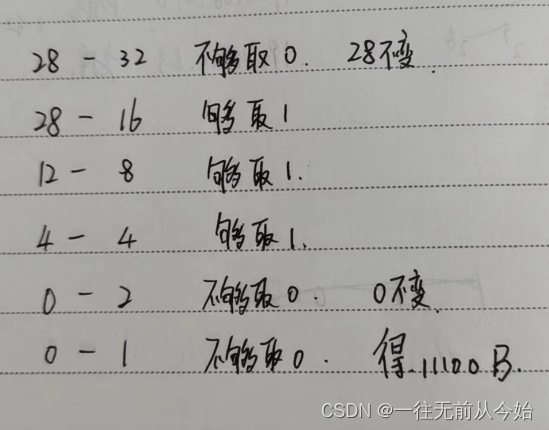 28 - 32 不够取0. 28不变.
28 - 16 够取1
12 - 8 够取1.
4 - 4 够取1.
0 - 2 不够取0. 0不变.
0 - 1 不够取0. 得 11100B.
CSDN @一往无前从今始